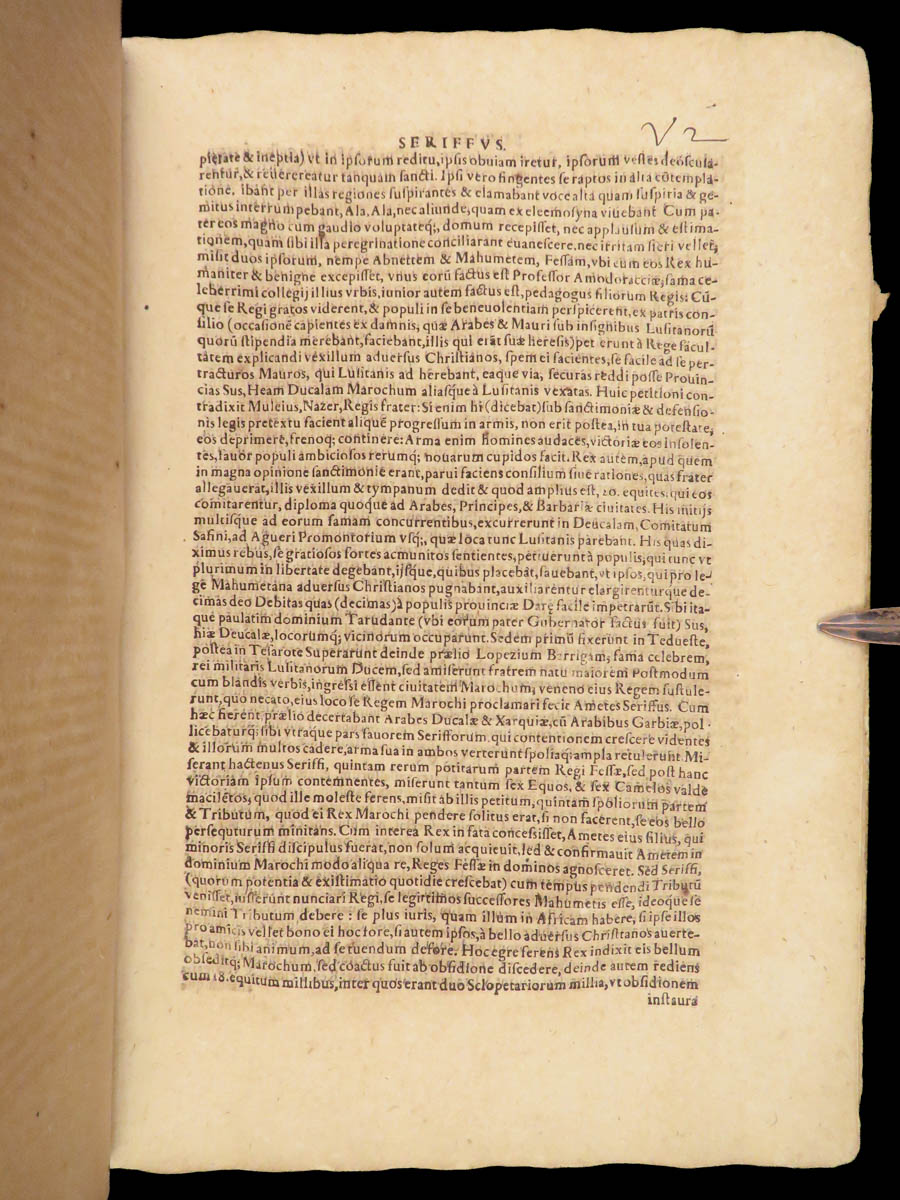 V2
SERIFFVS.
pietate & ineptia) vt in ipsorum reditu, ipsis obuiam iretur, ipsorum vestes deoscula-
rentur, & reuererẽatur tanquam sancti. Ipsi vero fingentes se raptos in alta cõtempla-
tione, ibant per illas regiones suspirantes & clamabant voce alta quam suspiria & ge-
mitus interrumpebant, Ala, Ala, nec aliunde, quam ex eleemosyna viuebant Cum pa-
ter eos magno cum gaudio voluptateq;, domum recepisset, nec applausum & estima-
tionem, quam sibi illa peregrinatione conciliarant euanescere, nec irritam fieri vellet,
misit duos ipsorum, nempe Abnettem & Mahumetem, Fessam, vbi cum eos Rex hu-
maniter & benigne excepisset, vnus eorũ factus est Professor Amodoracciæ, fama ce-
leberrimi collegij illius vrbis, iunior autem factus est, pedagogus filiorum Regis: Cũ-
que se Regi gratos viderent, & populi in se beneuolentiam perspicerent, ex patris con-
silio (occasionẽ capientes ex damnis, quæ Arabes & Mauri sub insignibus Lusitanorũ
quorũ stipendia merebant, faciebant, illis qui erãt suæ heresis) peterunt à Rege facul-
tatem explicandi vexillum aduersus Christianos, spem ei facientes, se facile ad se per-
tracturos Mauros, qui Lusitanis ad herebant, eaque via, securas reddi posse Prouin-
cias Sus, Heam Ducalam Marochum aliasque à Lusitanis vexatas. Huic petitioni con-
tradixit Muleius, Nazer, Regis frater: Si enim hi (dicebat) sub sanctimoniæ & defensio-
nis legis pretextu facient aliquẽ progressum in armis, non erit postea, in tua potestate,
eos deprimere, frenoq; continere: Arma enim homines audaces, victoriæ eos insolen-
tes, fauor populi ambiciosos rerumq; nouarum cupidos facit. Rex autem, apud quem
in magna opinione sanctimonie erant, parui faciens consilium siue rationes, quas frater
allegauerat, illis vexillum & tympanum dedit & quod amplius est, 20. equites, qui eos
comitarentur, diploma quoque ad Arabes, Principes, & Barbariæ ciuitates. His initijs
multisque ad eorum famam concurrentibus, excurrerunt in Deucalam, Comitatum
Safini, ad Agueri Promontorium vsq;, quæ loca tunc Lusitanis parebant. His quas di-
ximus rebus, se gratiosos fortes ac munitos sentientes, petiuerunt à populis, qui tunc vt
plurimum in libertate degebant, ijsque, quibus placebãt, fauebant, vt ipsos, qui pro le-
ge Mahumetana aduersus Christianos pugnabant, auxiliarentur elargirenturque de-
cimas deo Debitas quas (decimas) à populis prouinciæ Dare facile impetrarũt. Sibi ita-
que paulatim dominium Tarudante (vbi eorum pater Gubernator factus fuit) Sus,
hiæ Deucalæ, locorumq; vicinorum occuparunt. Sedem primũ fixerunt in Tedueste,
postea in Tesarote Superarunt deinde prælio Lopezium Barrigam, fama celebrem,
rei militaris Lusitanorum Ducem, sed amiserunt fratrem natu maiorem Postmodum
cum blandis verbis, ingressi essent ciuitatem Marochum, veneno eius Regem sustule-
runt, quo necato, eius loco se Regem Marochi proclamari fecit Ametes Seriffus. Cum
hæc fierent, prælio decertabant Arabes Ducalæ & Xarquiæ, cũ Arabibus Garbiæ, pol-
licebaturq; sibi vtraque pars fauorem Serifforum, qui contentionem crescere videntes
& illorum multos cadere, arma sua in ambos verterunt spoliaq; ampla retulerunt. Mi-
serant hactenus Seriffi, quintam rerum potitarum partem Regi Fessæ, sed post hanc
victoriam ipsum contemnentes, miserunt tantum sex Equos, & sex Camelos valde
macilẽtos, quod ille moleste ferens, misit ab illis petitum, quintam spoliorum partem
& Tributum, quod ei Rex Marochi pendere solitus erat, si non facerent, se eos bello
persequuturum minitans. Cum interea Rex in fata concessisset, Ametes eius filius, qui
minoris Seriffi discipulus fuerat, non solum acquieuit, sed & confirmauit Ametem in
dominium Marochi modo aliqua re, Reges Fessæ in dominos agnosceret. Sed Seriffi,
(quorum potentia & existimatio quotidie crescebat) cum tempus pendendi Tributũ
venisset, iusserunt nunciari Regi, se legittimos successores Mahumetis esse, ideoque se
nemini Tributum debere: se plus iuris, quam illum in Africam habere, si ipse illos
pro amicis vellet bono ei hoc fore, si autem ipsos, à bello aduersus Christianos auerte-
bat, non sibi animum, ad se tuendum defore. Hoc egre ferens Rex indixit eis bellum
obseditq; Marochum, sed coactus fuit ab obsidione discedere, deinde autem rediens
cum 18. equitum millibus, inter quos erant duo Sclopetariorum millia, vt obsidionem
instaura